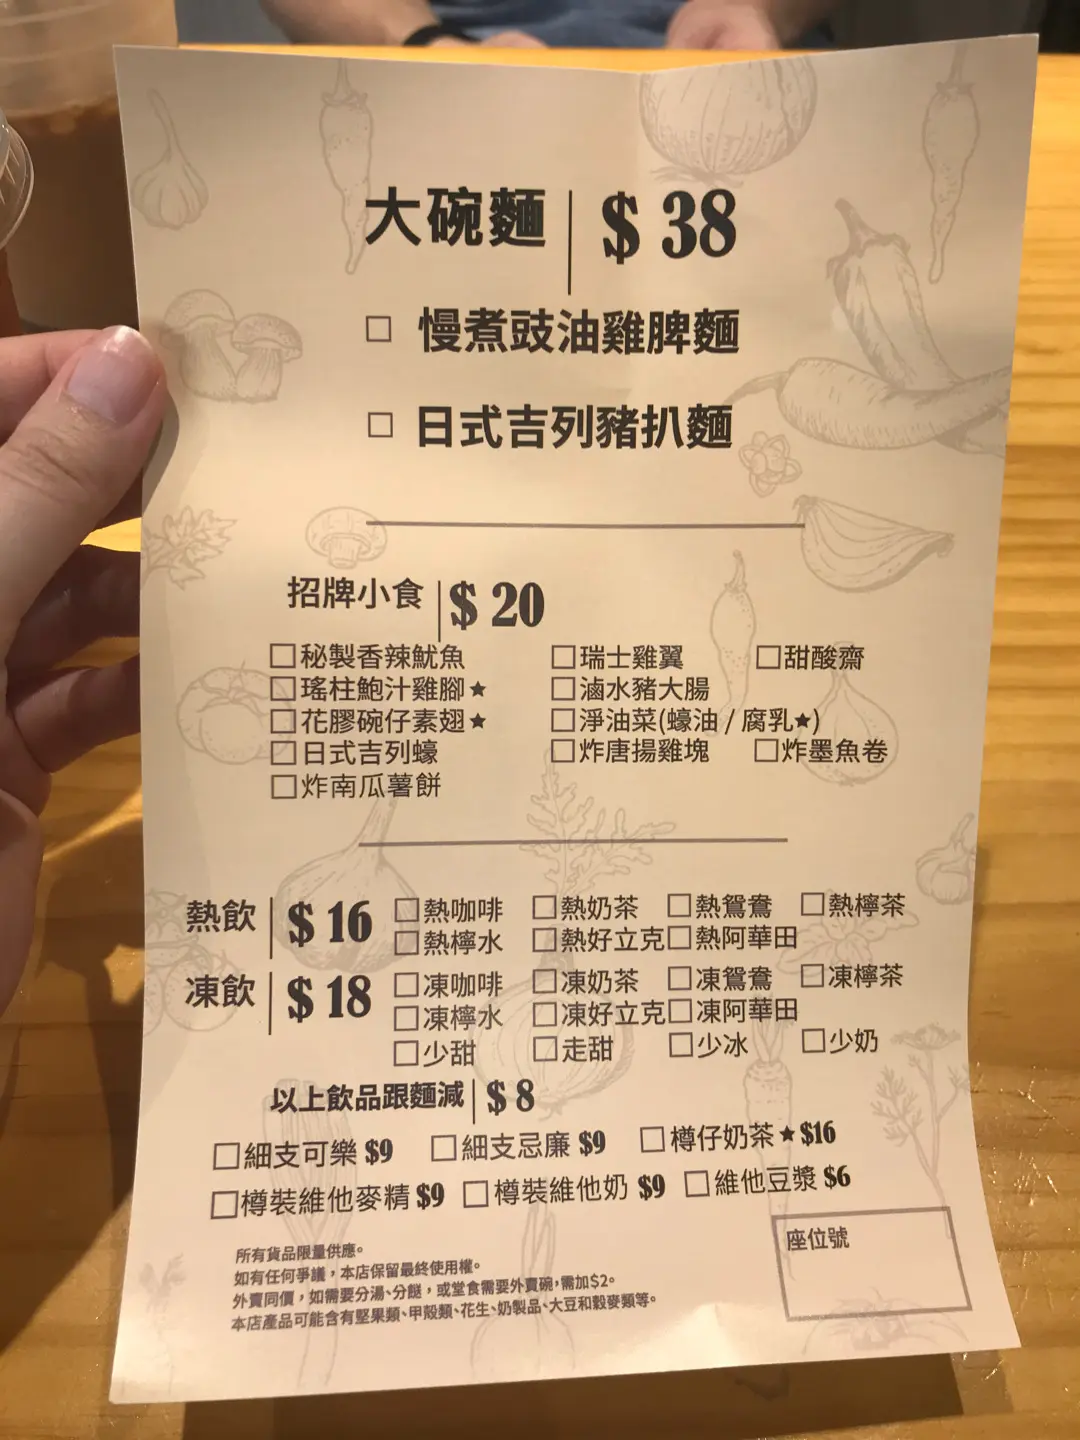 大碗麵 | $ 38
□ 慢煮豉油雞脾麵
□ 日式吉列豬扒麵
招牌小食 | $ 20
□秘製香辣魷魚 □瑞士雞翼 □甜酸齋
□瑤柱鮑汁雞腳★ □滷水豬大腸
□花膠碗仔素翅★ □淨油菜(蠔油 / 腐乳★)
□日式吉列蠔 □炸唐揚雞塊 □炸墨魚卷
□炸南瓜薯餅
熱飲 | $ 16 □熱咖啡 □熱奶茶 □熱鴛鴦 □熱檸茶
□熱檸水 □熱好立克 □熱阿華田
凍飲 | $ 18 □凍咖啡 □凍奶茶 □凍鴛鴦 □凍檸茶
□凍檸水 □凍好立克 □凍阿華田
□少甜 □走甜 □少冰 □少奶
以上飲品跟麵減 | $ 8
□細支可樂 $9 □細支忌廉 $9 □樽仔奶茶★$16
□樽裝維他麥精 $9 □樽裝維他奶 $9 □維他豆漿 $6
座位號
所有貨品限量供應。
如有任何爭議，本店保留最終使用權。
外賣同價，如需要分湯、分餸，或堂食需要外賣碗，需加$2。
本店產品可能含有堅果類、甲殼類、花生、奶製品、大豆和穀麥類等。